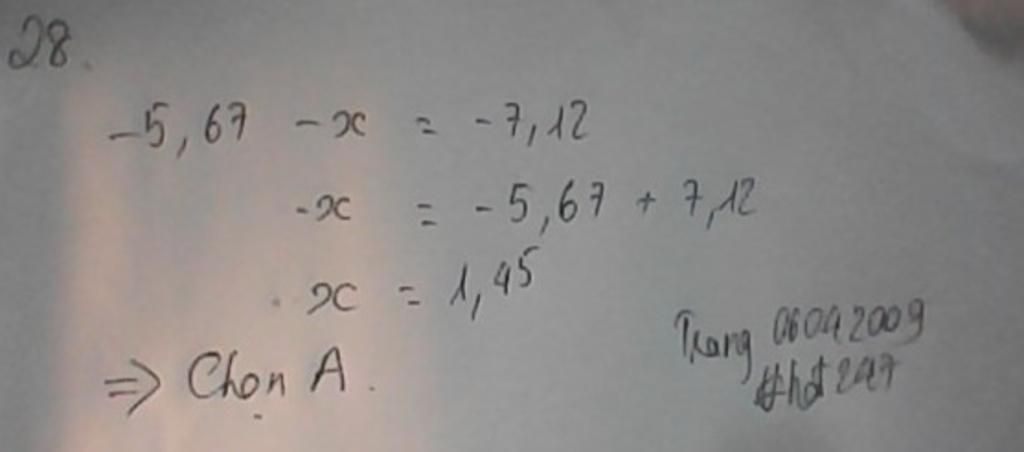 28.
-5,67 -x = -7,12
-x = -5,67 + 7,12
x = 1,45
=> Chọn A.
Trang 06042009
#hot247